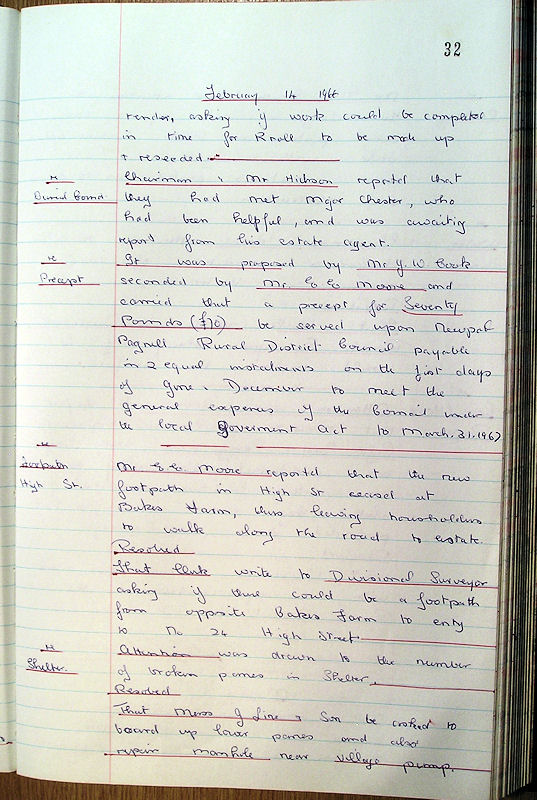 32
February 14 1966
render, asking if work could be completed
in time for Knoll to be made up
& reseeded.
Chairman & Mr Hickson reported that
Burial Ground they had met Major Chester, who
had been helpful, and was awaiting
report from his estate agent.
It was proposed by Mr J. W Cook
Precept seconded by Mr. G. G. Moore and
carried that a precept for Seventy
Pounds (£70) be served upon Newport
Pagnell Rural District Council payable
in 2 equal instalments on the first days
of June & December to meet the
general expenses of the Council under
the local Goverment Act to March. 31. 1967
footpath Mr G. G. Moore reported that the new
High St. footpath in High St ceased at
Bakers Farm, thus leaving householders
to walk along the road to estate.
Resolved
That Clerk write to Divisional Surveyor
asking if there could be a footpath
from opposite Bakers Farm to entry
to No 24 High Street
Attention was drawn to the number
Shelter. of broken panes in Shelter.
Resolved
That Messrs & Son be asked to
board up lower panes and also
repair manhole near village pump.